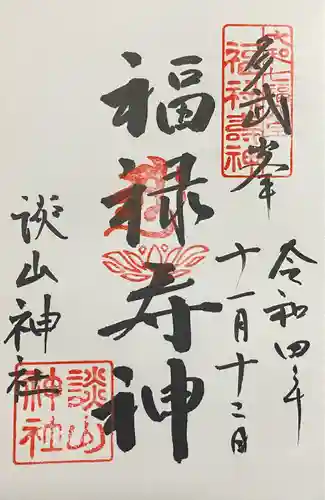 多武峯
令和四年
十一月十二日
福禄寿神
談山神社
談山
神社